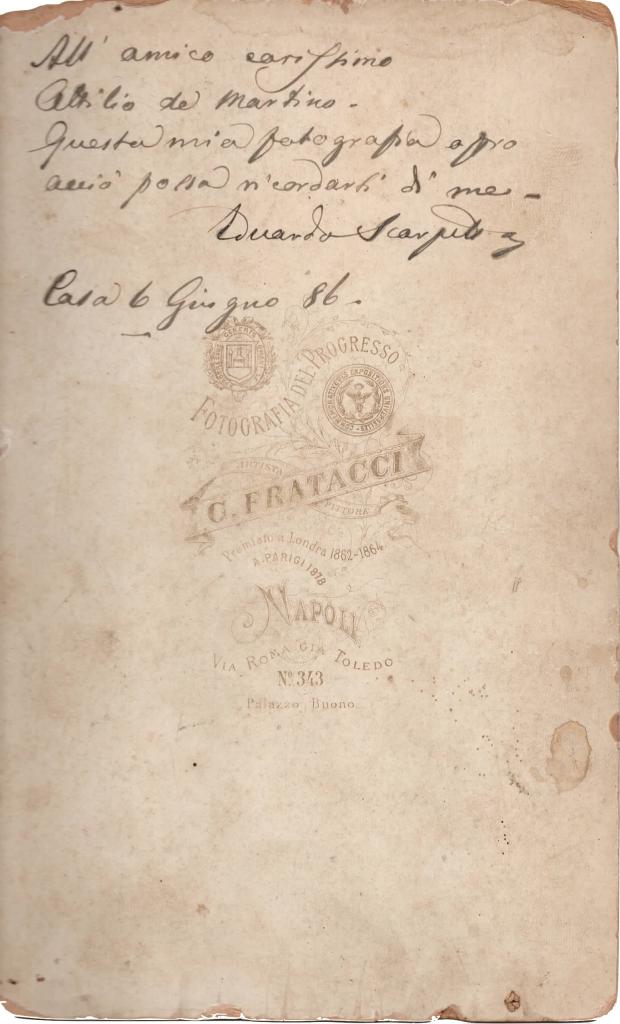 All' amico carissimo
Attilio de Martino -
Questa mia fotografia
acciò possa ricordarti di me -
Eduardo Scarpetta
Casa 6 Giugno 86 -
FOTOGRAFIA DEL PROGRESSO
ARTISTA
C. FRATACCI
PITTORE
Premiato a Londra 1862-1864
A. PARIGI 1878
NAPOLI
VIA ROMA GIÀ TOLEDO
Nº 343
Palazzo Buono